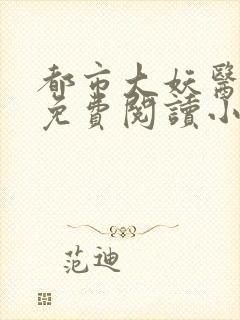 都市大妖醫
免費閱讀小
范迪